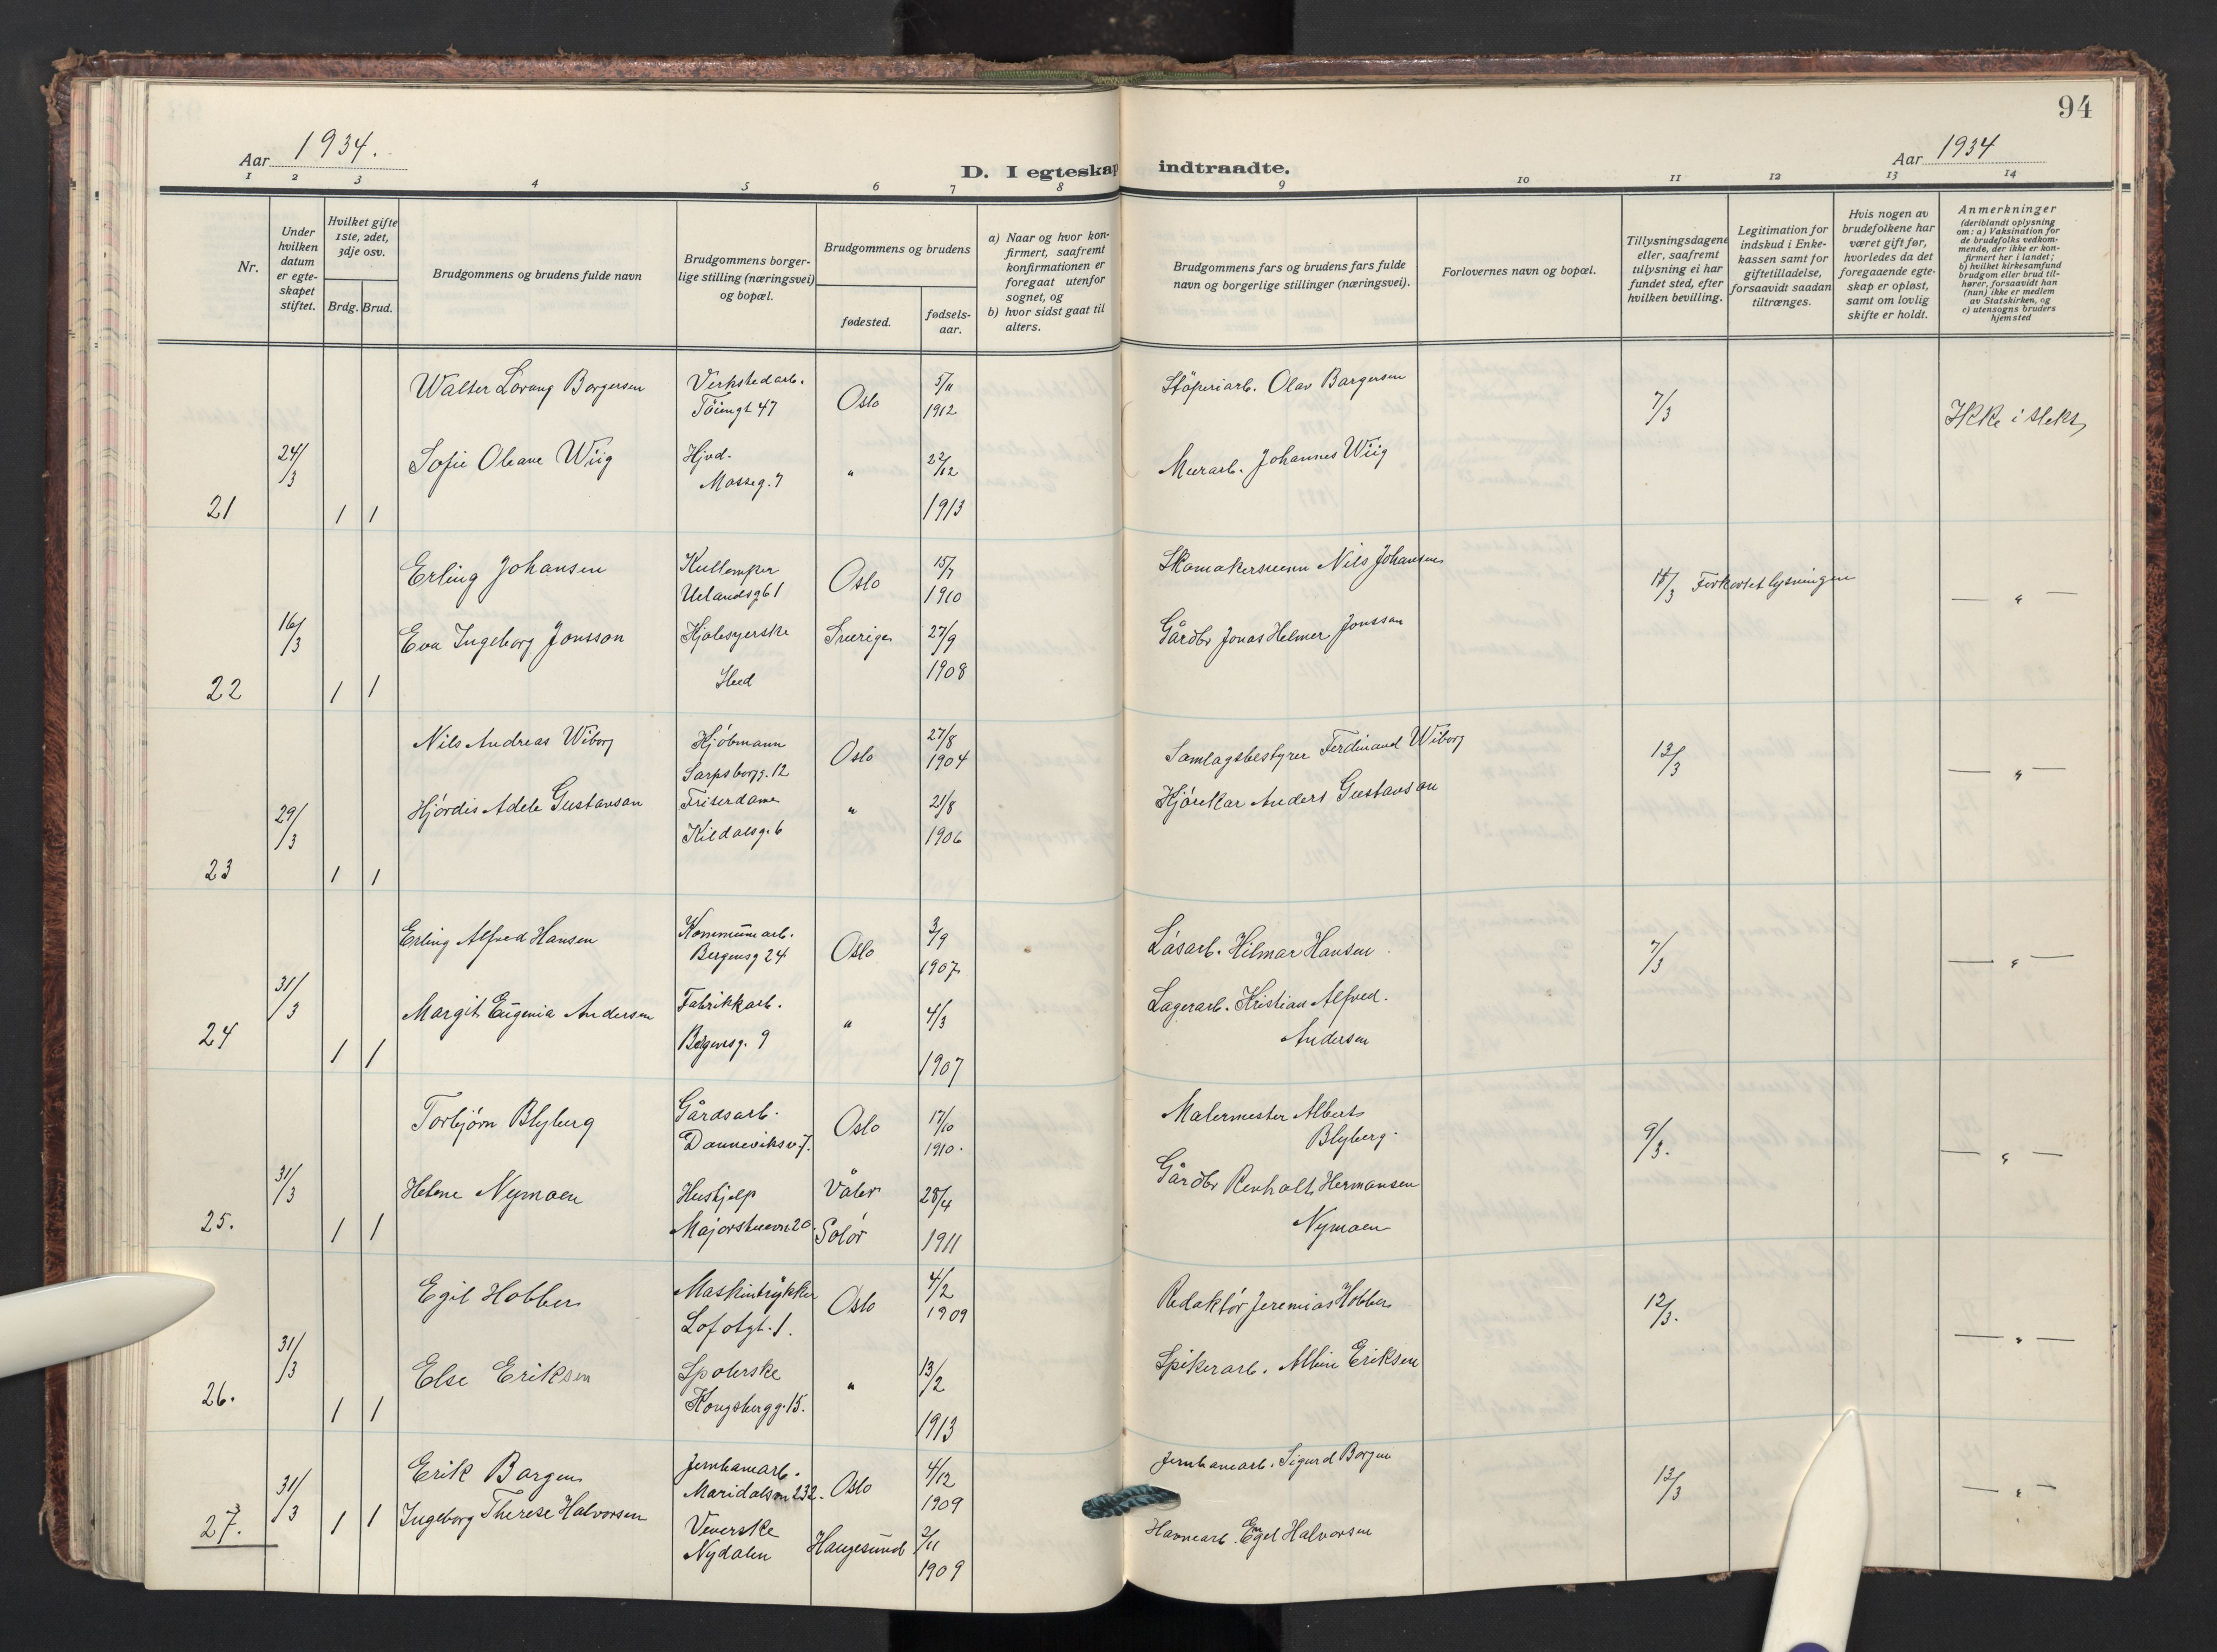 94
Aar 1934.
D. I egteskap indtraadte.
Aar 1934
1 2 3 4 5 6 7 8 9 10 11 12 13 14
Nr.
Under hvilken datum er egteskapet stiftet.
Hvilket gifte 1ste, 2det, 3dje osv.
Brdg. Brud.
Brudgommens og brudens fulde navn
Brudgommens borgerlige stilling (næringsvei) og bopæl.
Brudgommens og brudens
fødested.
fødselsaar.
a) Naar og hvor konfirmert, saafremt konfirmationen er foregaat utenfor sognet, og
b) hvor sidst gaat til alters.
Brudgommens fars og brudens fars fulde navn og borgerlige stillinger (næringsvei).
Forlovernes navn og bopæl.
Tillysningsdagene eller, saafremt tillysning ei har fundet sted, efter hvilken bevilling.
Legitimation for indskud i Enkekassen samt for giftetilladelse, forsaavidt saadan tiltrænges.
Hvis nogen av brudefolkene har været gift før, hvorledes da det foregaaende egteskap er opløst, samt om lovlig skifte er holdt.
Anmerkninger
(deriblandt oplysning om: a) Vaksination for de brudefolks vedkommende, der ikke er konfirmert her i landet; b) hvilket kirkesamfund brudgom eller brud tilhører, forsaavidt han (hun) ikke er medlem av Statskirken, og c) utensogns bruders hjemsted
Walter Lorang Borgersen Verkstedarb. Oslo 5/11 Støperiarb. Olav Borgersen 7/3 Ikke i slekt
Töiengt 47 1912
24/3 Sofie Oleane Wiig Hjvd. " 22/12 Murarb. Johannes Wiig
Mosseg. 7
21 1 1 1913
Erling Johansen Oslo 15/7 Skomakersvenn Nils Johansen 15/3 Forkortet lysningen — " —
Uelandsg 61 1910
16/3 Eva Ingeborg Jonsson Kjolesyerske Sverige 27/9 Gårdbr Jonas Helmer Jonsson
22 1 1 Sted 1908
Nils Andreas Wiborg Kjöbmann Oslo 27/8 Samlagsbestyrer Ferdinand Wiborg 13/3 — " —
Sarpsborgg. 12 1904
29/3 Hjördis Adele Gustavson Friserdame " 21/8 Kjörekar Anders Gustavson
Kildalsg. 6 1906
23 1 1
Erling Alfred Hansen Kommunearb. Oslo 3/9 Låsarb. Hilmar Hansen 7/3 — " —
Bergensg 24 1907
31/3 Margit Eugenia Andersen Fabrikkarb. " 4/3 Lagerarb. Kristian Alfred
Andersen
24 1 1 Bergensg. 9 1907
Torbjørn Blyberg Gårdsarb. Oslo 17/10 Malermester Albert 9/3. — " —
Danneviksv. 7. 1910. Blyberg.
31/3 Helene Nymoen Hushjelp Våler 28/4 Gårdbr Renholt Hermansen
25. 1 1 Majorstuevn 20. Solør 1911 Nymoen
Egil Hobber Maskintrykker Oslo 4/2 Redaktör Jeremias Hobber 12/3. — " —
Lofotgt. 1. 1909
31/3 Else Eriksen Spolerske " 13/2 Spikerarb. Albin Eriksen
26. 1 1 Kongsbergg. 15. 1913
Erik Borgen Jernbanearb. Oslo 4/12 Jernbanearb. Sigurd Borgen 13/3 — " —
Maridalsvn 232. 1909
31/3 Ingeborg Therese Halvorsen Veverske Haugesund 2/11 Havnearb. Engel Halvorsen
27. 1 1 Nydalen 1909